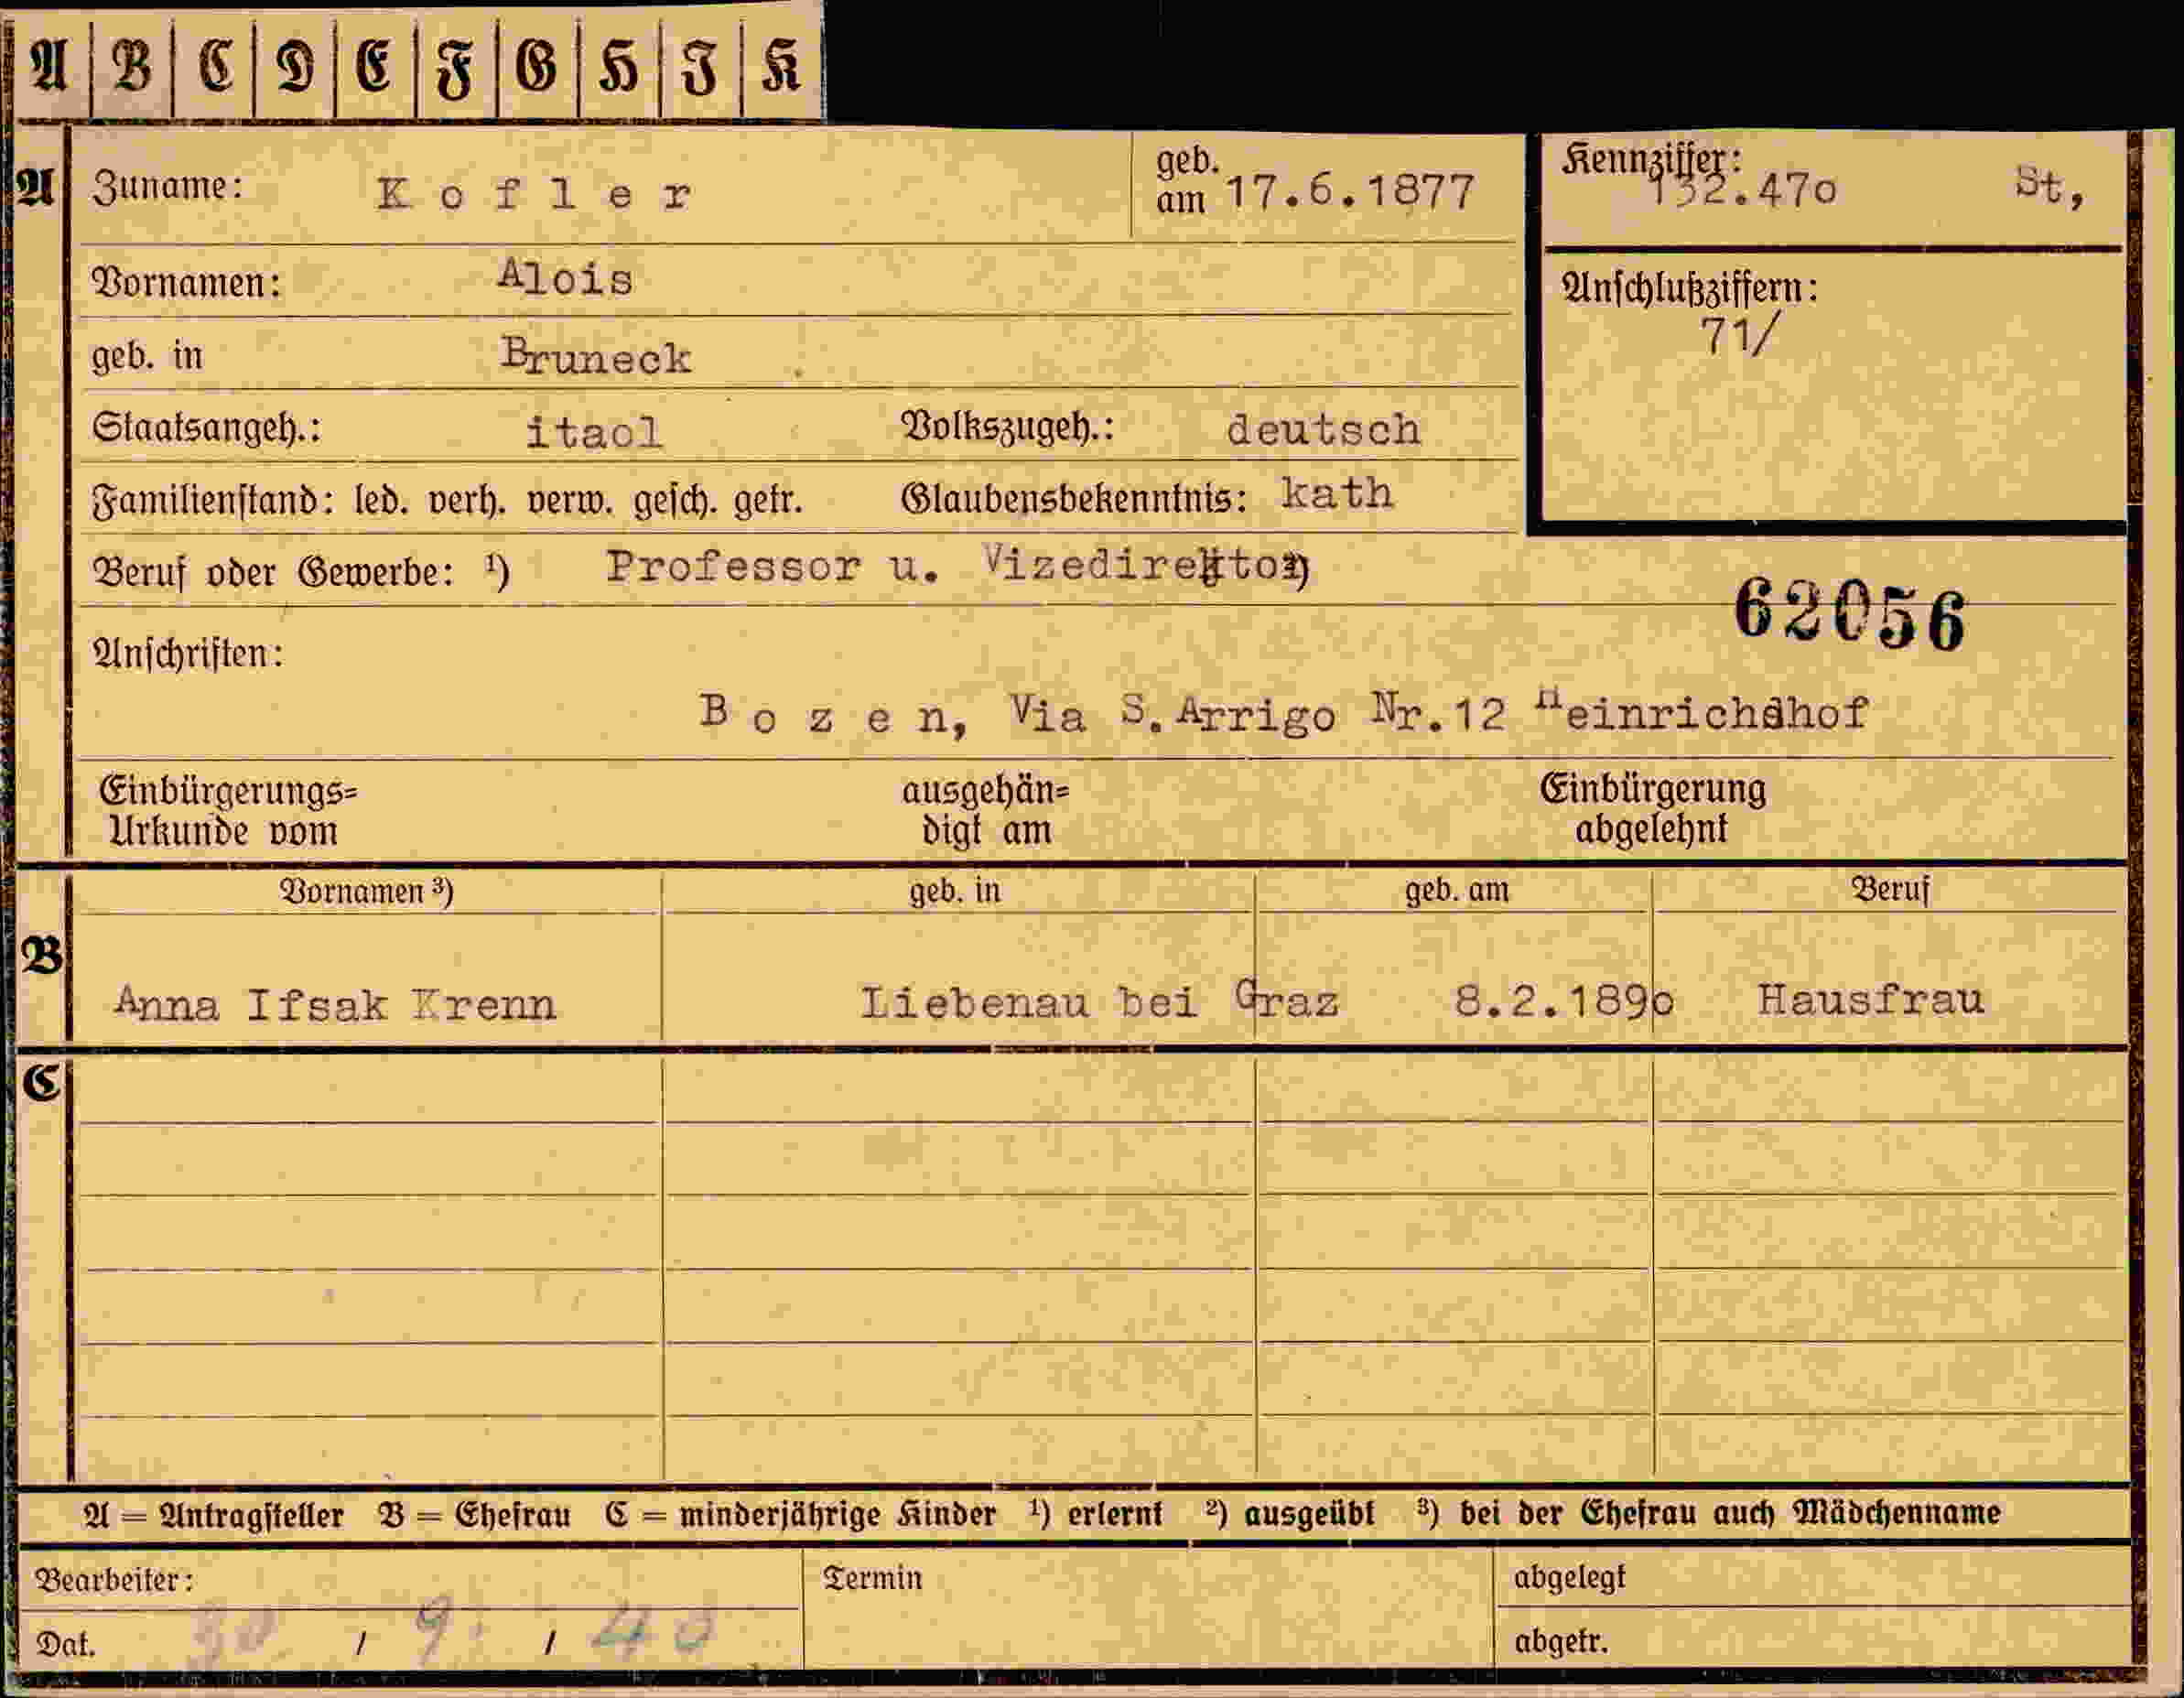 A B C D E F G H I K
A Zuname: Kofler geb. am 17.6.1877 Kennziffer: 132.470 St,
Vornamen: Alois Anschlußziffern:
71/
geb. in Bruneck
Staatsangeh.: itaol Volkszugeh.: deutsch
Familienstand: led. verh. verw. gesch. getr. Glaubensbekenntnis: kath
Beruf oder Gewerbe: ¹) Professor u. Vizedirektor ²)
62056
Anschriften:
Bozen, Via S.Arrigo Nr.12 Heinrichshof
Einbürgerungs= ausgehän= Einbürgerung
Urkunde vom digt am abgelehnt
Vornamen ³) geb. in geb. am Beruf
B
Anna Ifsak Krenn Liebenau bei Graz 8.2.1890 Hausfrau
C
A = Antragsteller B = Ehefrau C = minderjährige Kinder ¹) erlernt ²) ausgeübt ³) bei der Ehefrau auch Mädchenname
Bearbeiter: Termin abgelegt
Dat. 30 / 9. / 40 abgetr.